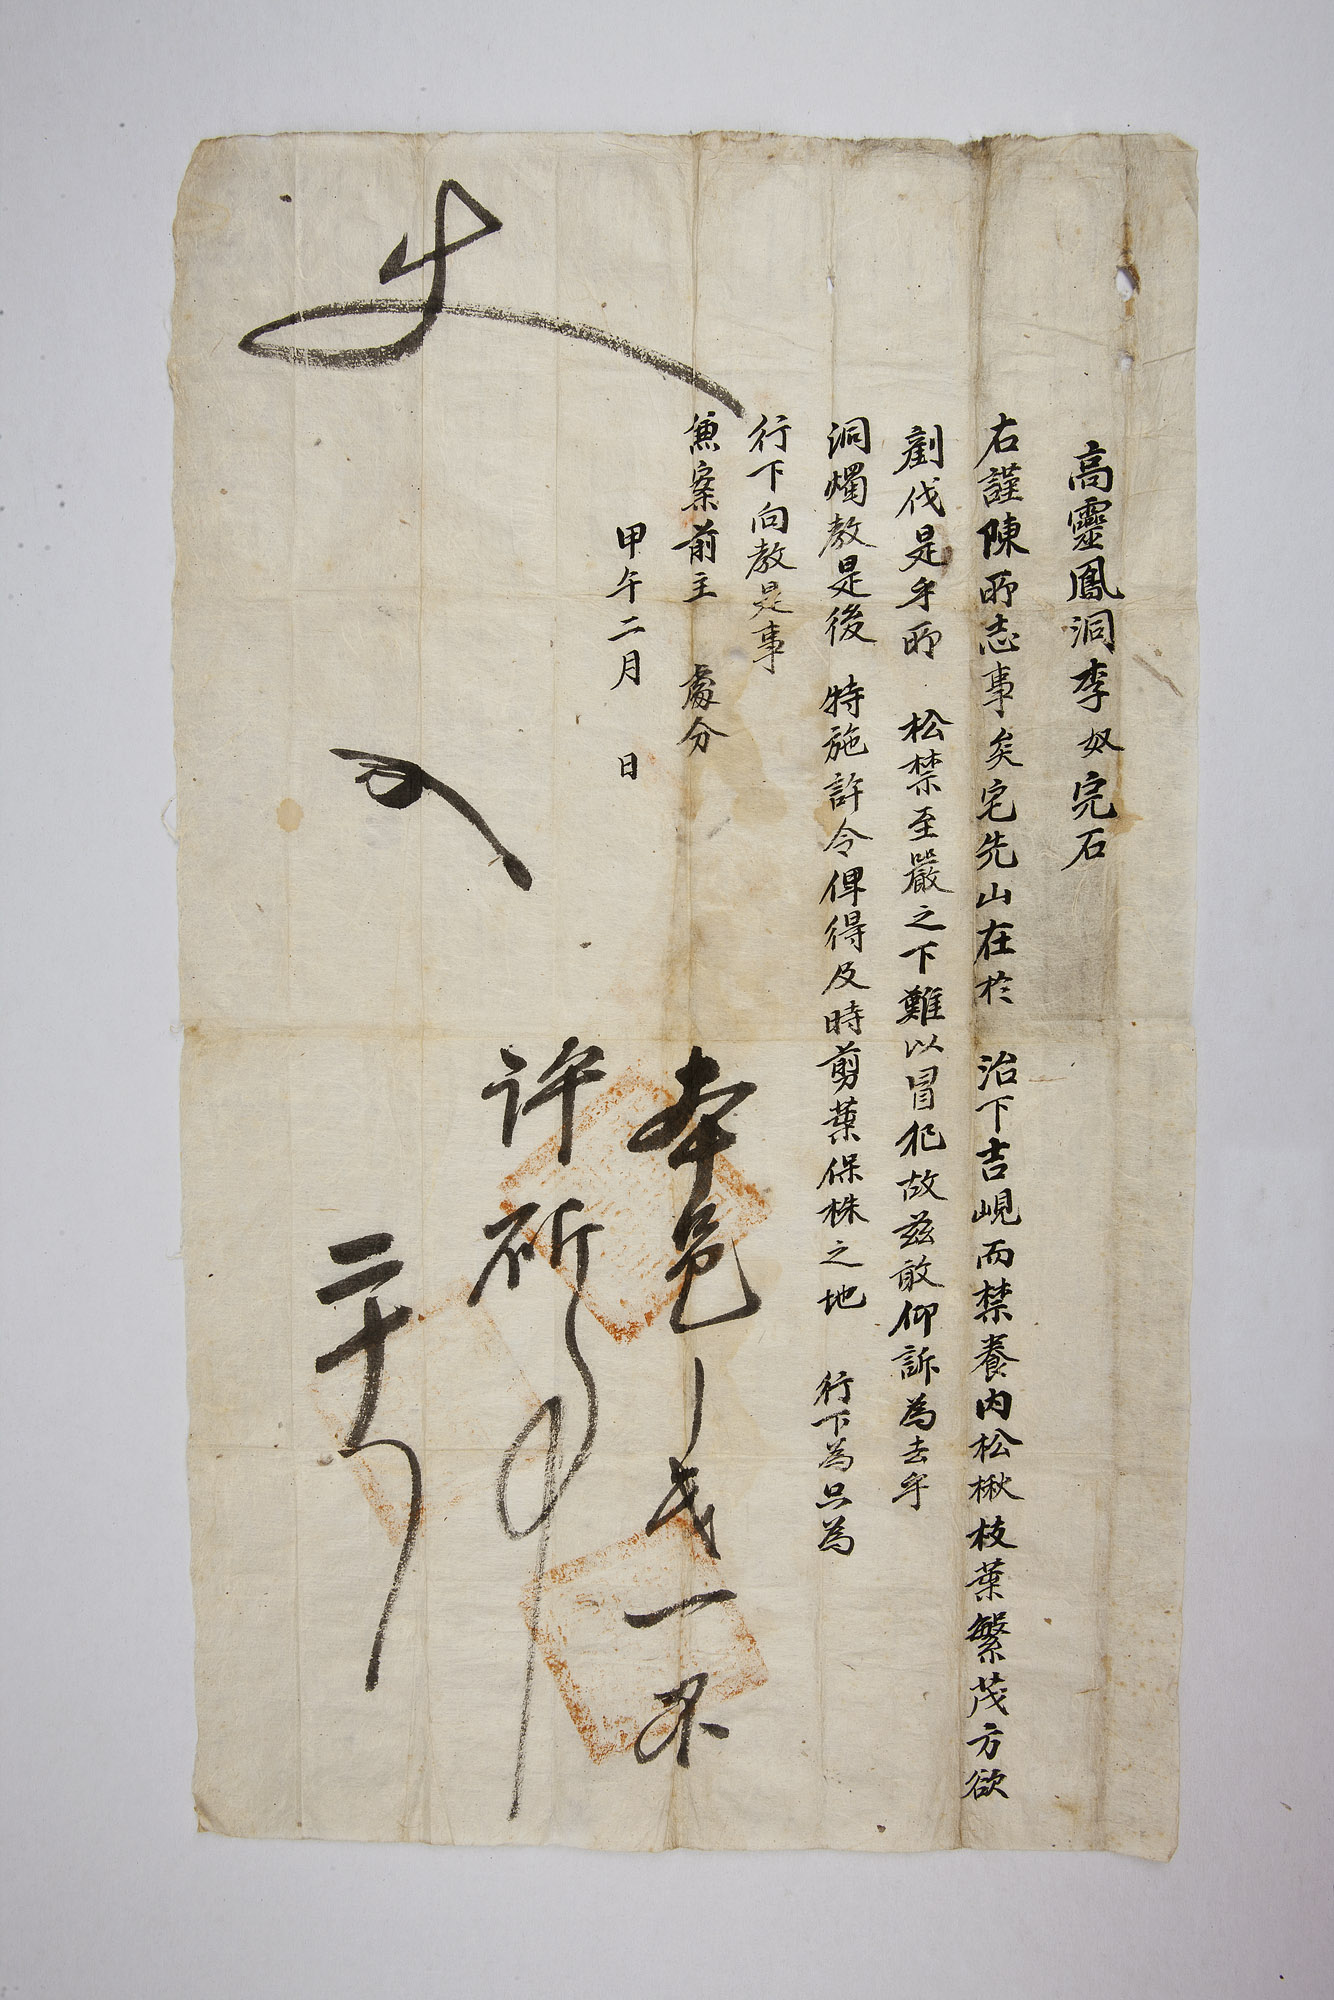 高靈鳳洞李奴完石
右謹陳所志事矣宅先山在於 治下吉峴而禁養內松楸枝葉繁茂方欲
劃伐是乎所 松禁至嚴之下難以冒犯故玆敢仰訴爲去乎
洞燭敎是後 特施許令俾得及時剪葉保株之地 行下爲只爲
行下向敎是事
兼案前主 處分
甲午二月 日
本邑
許斫
二十